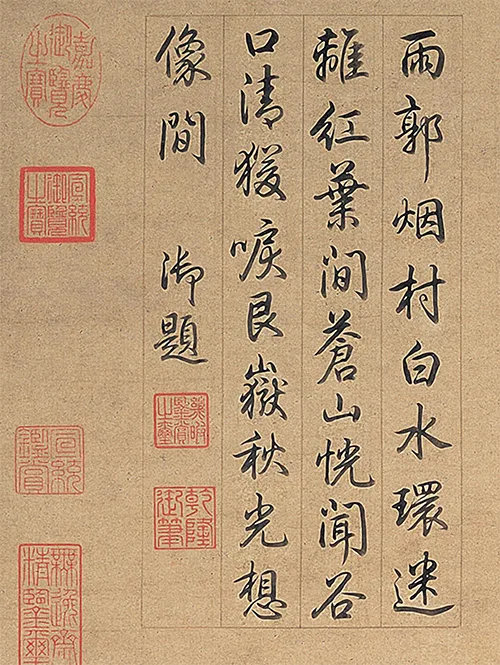 雨郭烟村白水環迷
離紅葉間蒼山恍聞谷
口清猨唳艮嶽秋光想
像間 御題
幾暇鑒賞之璽
乾隆御筆
嘉慶御覽之寶
宣統御覽之寶
宣統鑑賞
無逸齋精鑒璽